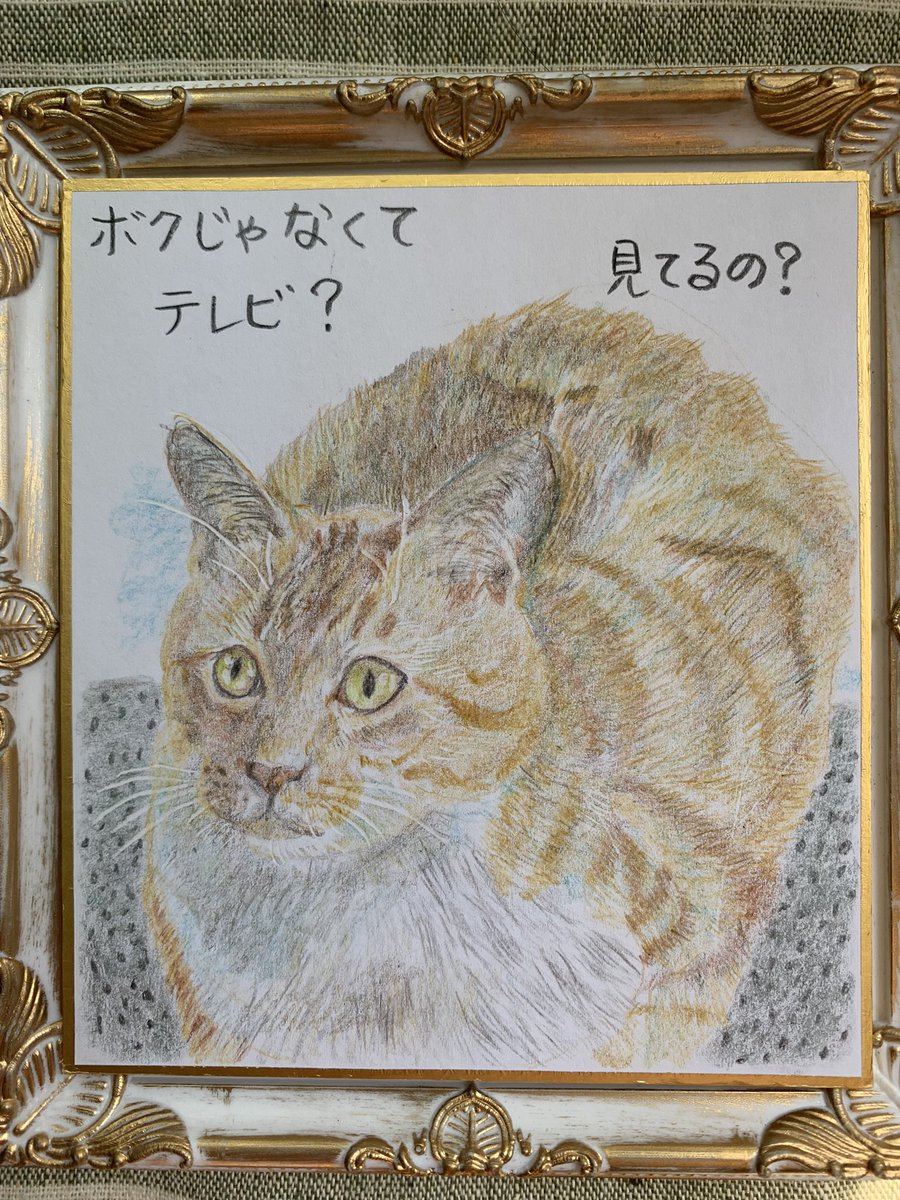 ボクじゃなくて
テレビ?
見てるの?